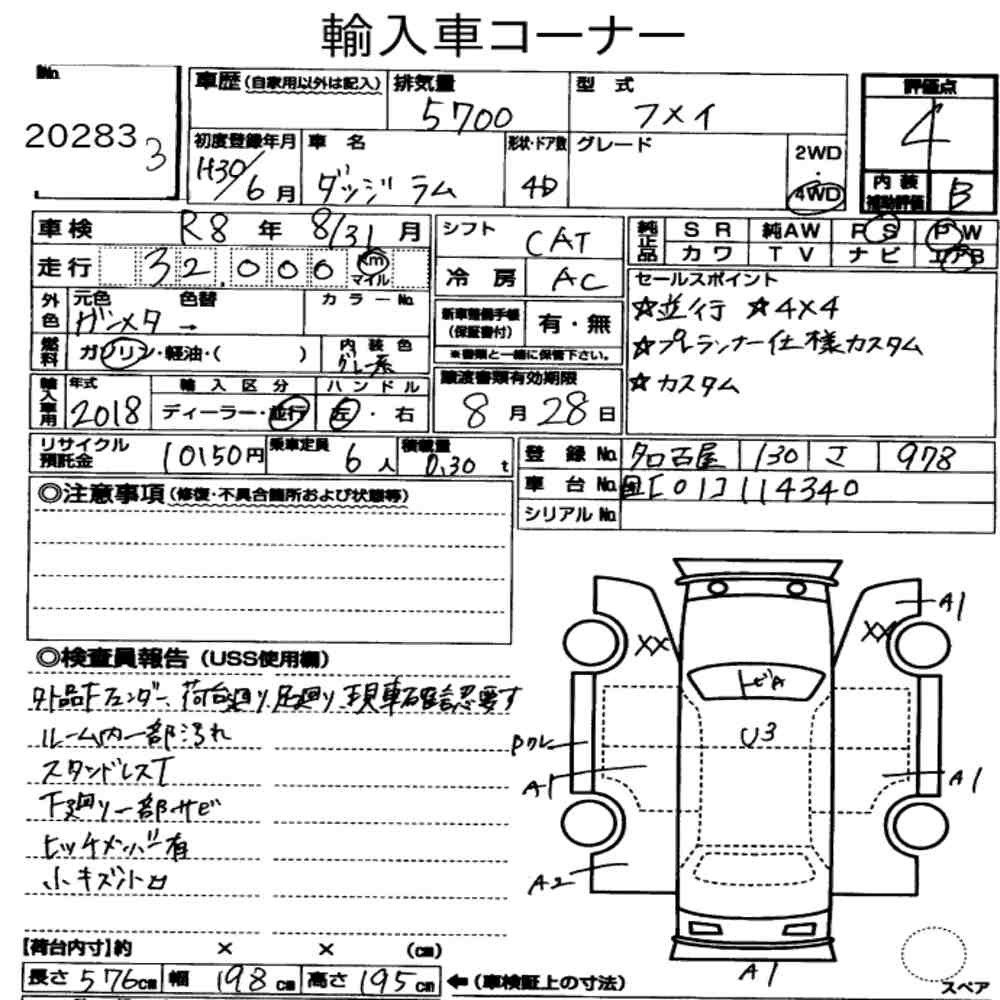 輸入車コーナー
No.
20283
3
車歴(自家用以外は記入)
排気量
5700
型式
フメイ
評価点
4
初度登録年月
H30/6月
車名
ダッジ ラム
形状・ドア数
4D
グレード
2WD
・
4WD
内装
補助評価
B
車検
R8年 8/31月
走行
32,000 Km
マイル
シフト
CAT
冷房
AC
純正品
SR
純AW
PS
PW
カワ
TV
ナビ
エアB
セールスポイント
☆並行 ☆4×4
☆プレランナー仕様カスタム
☆カスタム
外色
元色
色替
カラーNo.
ガンメタ →
燃料
ガソリン・軽油・( )
内装色
グレー系
新車整備手帳
(保証書付)
有・無
※書類と一緒に保管下さい。
譲渡書類有効期限
8月28日
輸入車用
年式
2018
輸入区分
ディーラー・並行
ハンドル
左・右
リサイクル
預託金
10150円
乗車定員
6人
積載量
0.30t
登録No.
名古屋 130 さ 978
車台No.
国[01]114340
シリアルNo.
◎注意事項(修復・不具合箇所および状態等)
◎検査員報告(USS使用欄)
外品Fフェンダー、荷台廻り、足廻り 現車確認要す
ルーム内一部汚れ
スタンドレスT
下廻り一部サビ
ヒッチメンバー有
小キズ凹
XX
XX
A1
ヒA
U3
Pワレ
A1
A1
A2
A1
【荷台内寸】約 × × (cm)
長さ576cm 幅198cm 高さ195cm ←(車検証上の寸法)
スペア